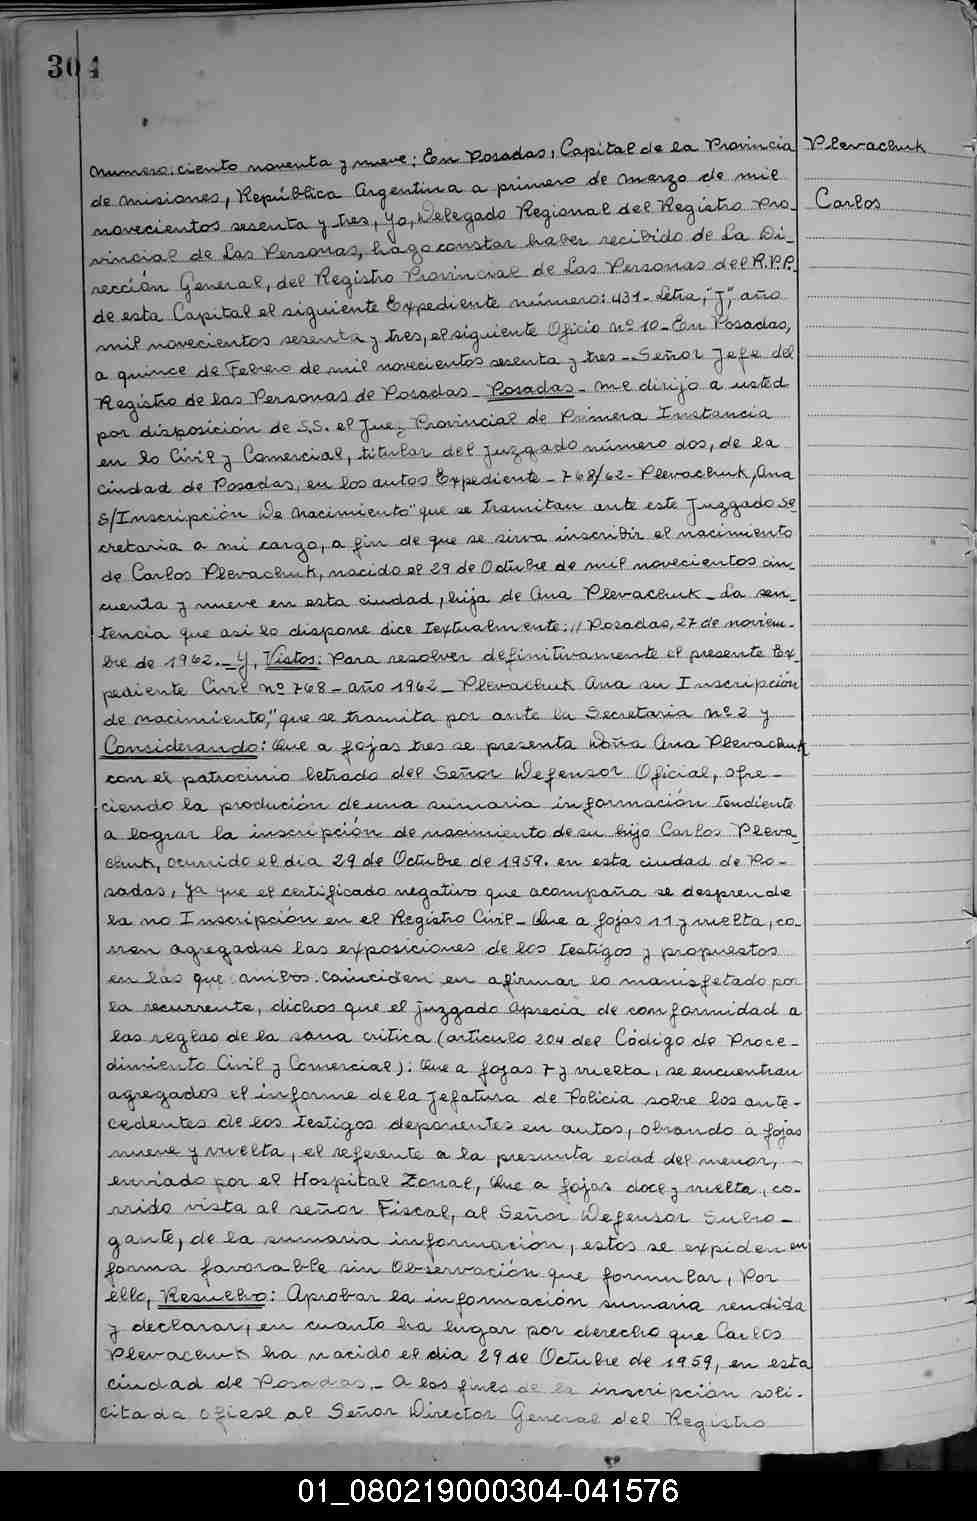 304
Numero: ciento noventa y nueve: En Posadas, Capital de la Provincia
Plevachuk
de Misiones, República Argentina a primero de Marzo de mil
Carlos
novecientos sesenta y tres, yo, Delegado Regional del Registro Pro_
vincial de Las Personas, hago constar haber recibido de La Di_
rección General, del Registro Provincial de Las Personas del R.P.P.
de esta Capital el siguiente Expediente número: 431- Letra, "J", año
mil novecientos sesenta y tres, el siguiente Oficio nº 10_ En Posadas,
a quince de Febrero de mil novecientos sesenta y tres_ Señor Jefe del
Registro de las Personas de Posadas_ Posadas_ Me dirijo a usted
por disposición de S.S. el Juez Provincial de Primera Instancia
en lo Civil y Comercial, titular del Juzgado número dos, de la
ciudad de Posadas, en los autos Expediente_ 768/62- Plevachuk, Ana
S/Inscripción De Nacimiento" que se tramitan ante este Juzgado Se
cretaria a mi cargo, a fin de que se sirva inscribir el nacimiento
de Carlos Plevachuk, nacido el 29 de Octubre de mil novecientos cin_
cuenta y nueve en esta ciudad, hijo de Ana Plevachuk_ La sen_
tencia que asi lo dispone dice textualmente: // Posadas, 27 de noviem_
bre de 1962._ Y, Vistos: Para resolver definitivamente el presente Ex_
pediente Civil nº 768_ año 1962_ Plevachuk Ana su Inscripción
de nacimiento," que se tramita por ante la Secretaria nº 2 y
Considerando: Que a fojas tres se presenta Doña Ana Plevachuk
con el patrocinio letrado del Señor Defensor Oficial, ofre_
ciendo la produción de una sumaria información tendiente
a lograr la inscripción de nacimiento de su hijo Carlos Pleva_
chuk, ocurrido el dia 29 de Octubre de 1959. en esta ciudad de Po_
sadas, ya que el certificado negativo que acompaña se desprende
la no Inscripción en el Registro Civil_ Que a fojas 11 y vuelta, co_
rren agregadas las exposiciones de los testigos y propuestos
en las que ambos coinciden en afirmar lo manisfetado por
la recurrente, dichos que el juzgado aprecia de conformidad a
las reglas de la sana critica (articulo 204 del Código de Proce_
dimiento Civil y Comercial): Que a fojas 7 y vuelta, se encuentran
agregados el informe de la Jefatura de Policia sobre los ante_
cedentes de los testigos deponentes en autos, obrando a fojas
nueve y vuelta, el referente a la presunta edad del menor,_
enviado por el Hospital Zonal, Que a fojas doce y vuelta, co_
rrido vista al señor Fiscal, al Señor Defensor Subro_
gante, de la sumaria información, estos se expiden en
forma favorable sin Observación que formular, Por
éllo, Resuelvo: Aprobar la información sumaria rendida
y declarar, en cuanto ha lugar por derecho que Carlos
Plevachuk ha nacido el dia 29 de Octubre de 1959, en esta
ciudad de Posadas._ A los fines de la inscripción soli_
citada ofiese al Señor Director General del Registro
01_080219000304-041576